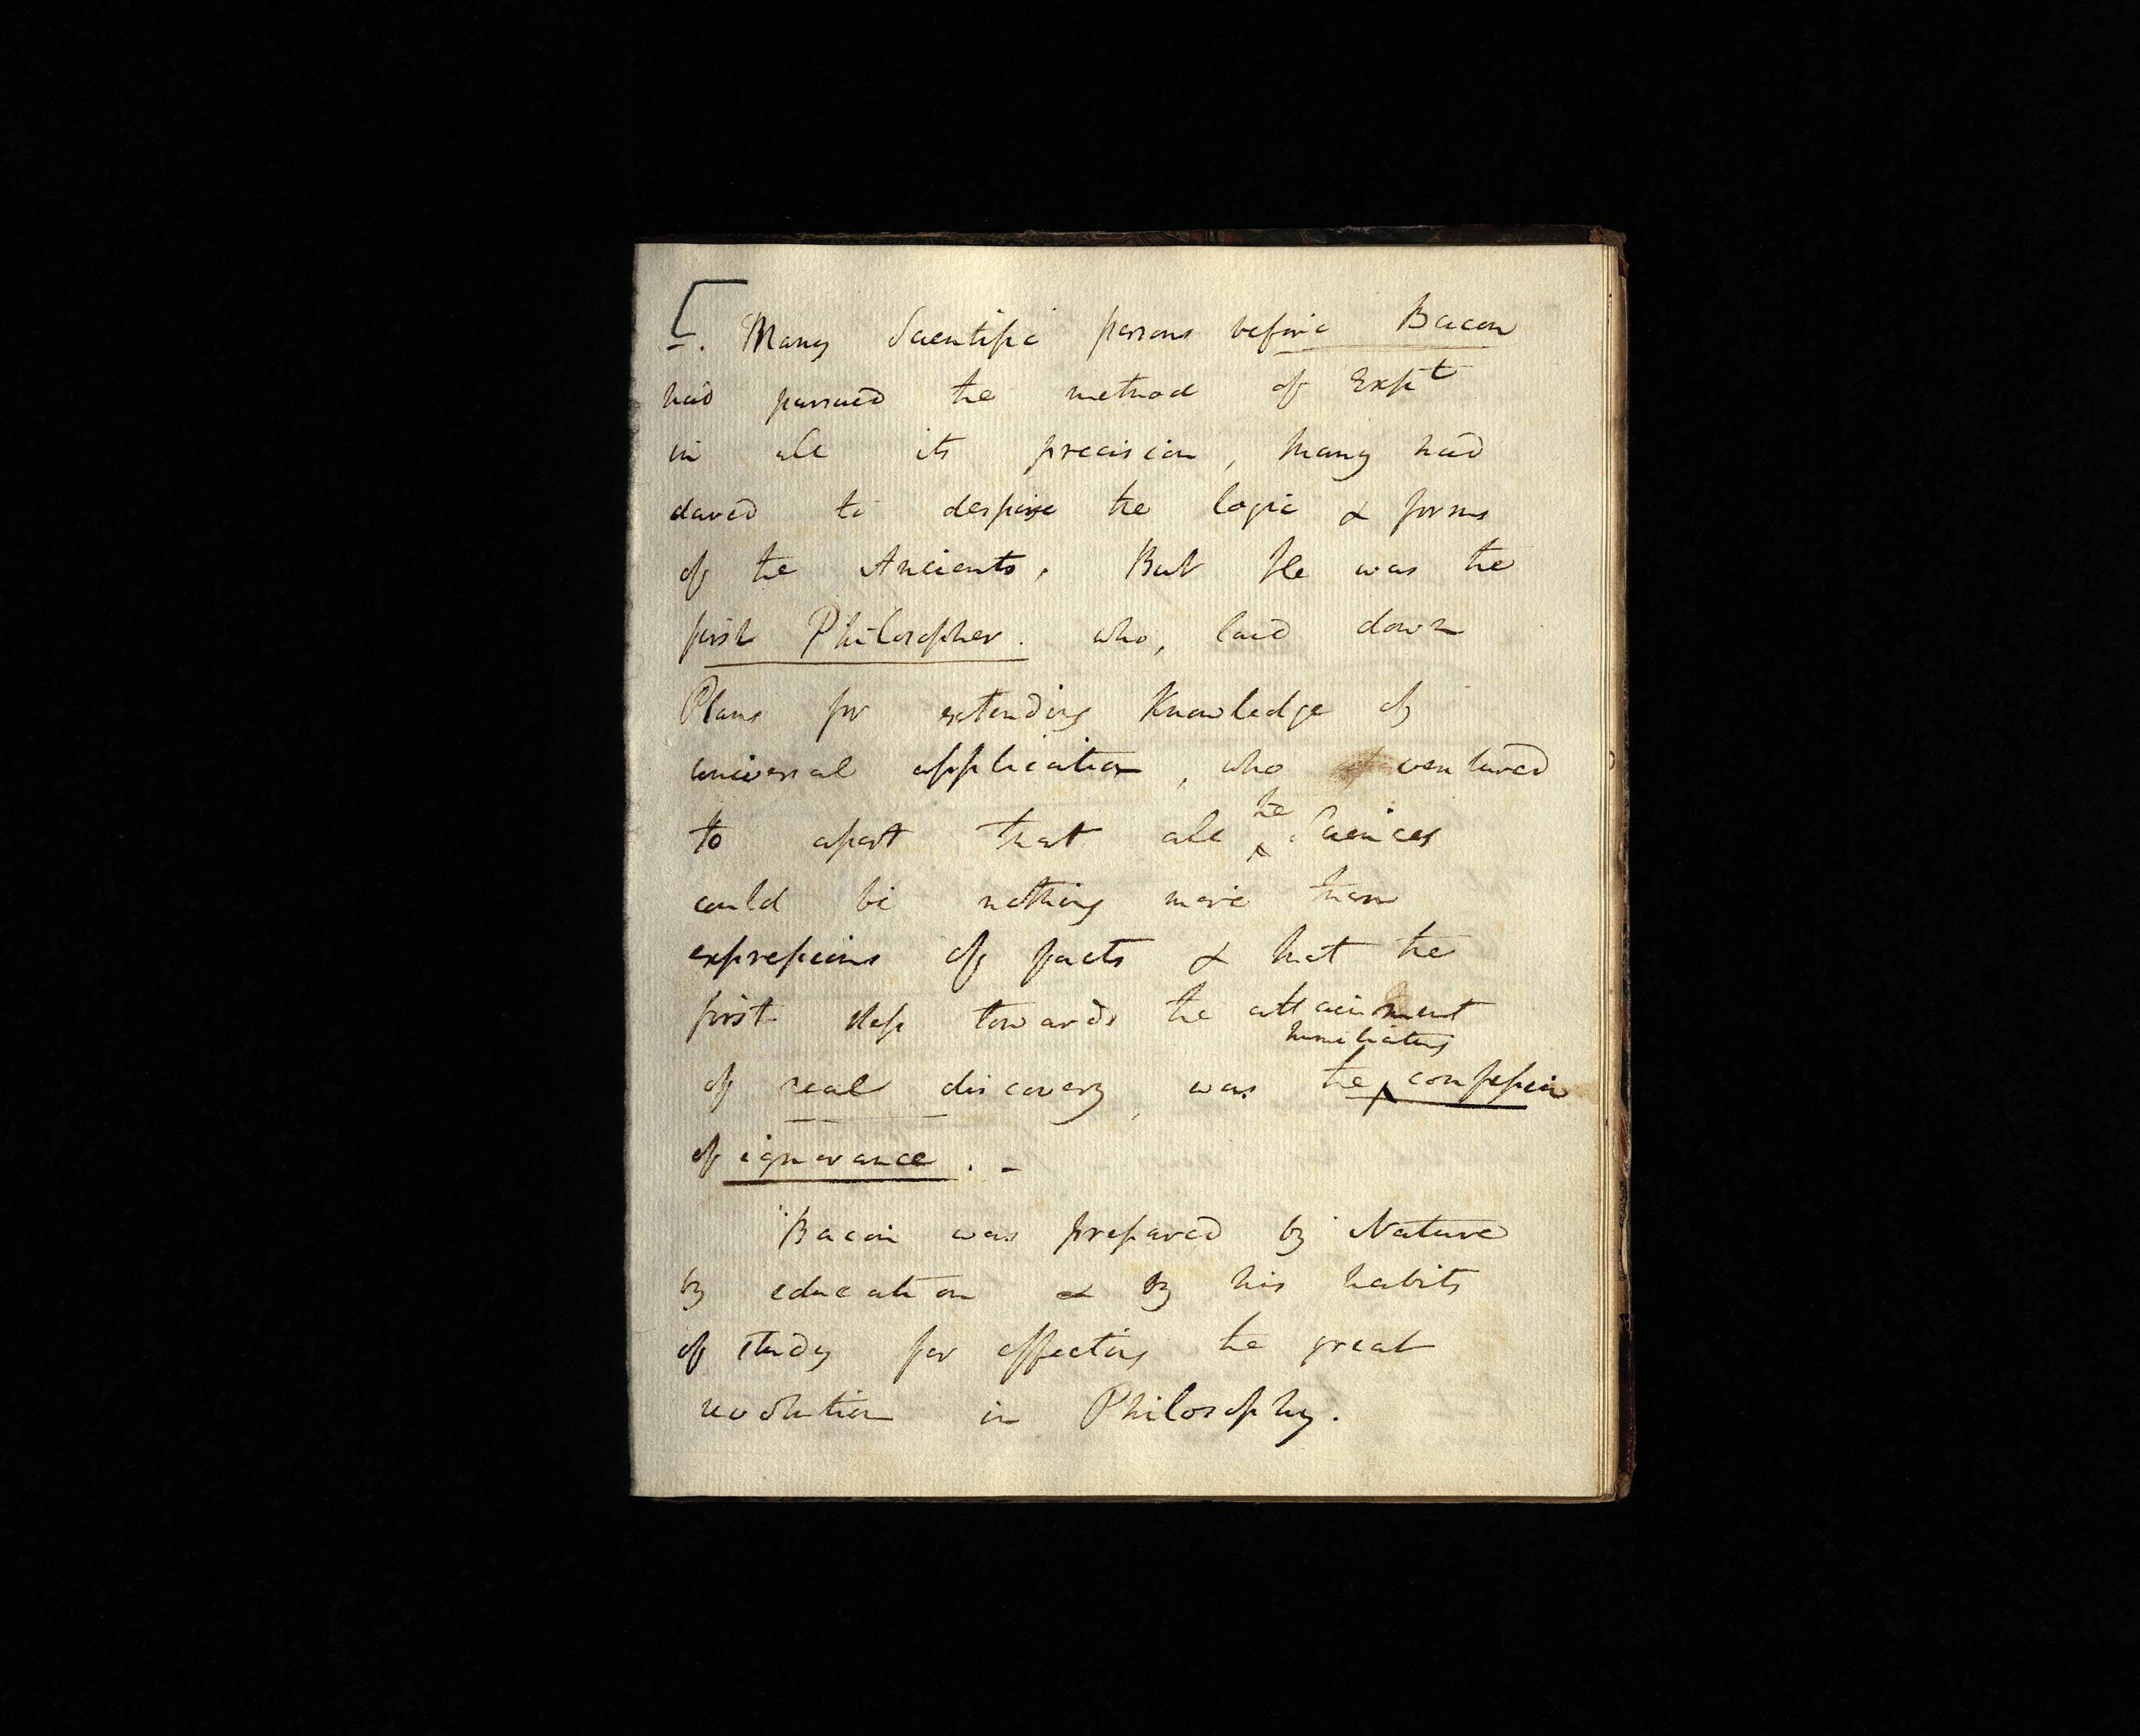 [_. Many Scientific persons before Bacon
had pursued the method of Expt
in all its precision, Many had
dared to despise the logic & forms
of the Ancients. But He was the
first Philosopher. who, laid down
Plans for extending Knowledge of
universal application, who ventured
to assert that all the Sciences
could be nothing more than
expressions of facts & that the
first step towards the attainment
humiliating
of real discovery, was the confession
of ignorance. -
Bacon was prepared by Nature
by education & by his habits
of study for effecting the great
revolution in Philosophy.